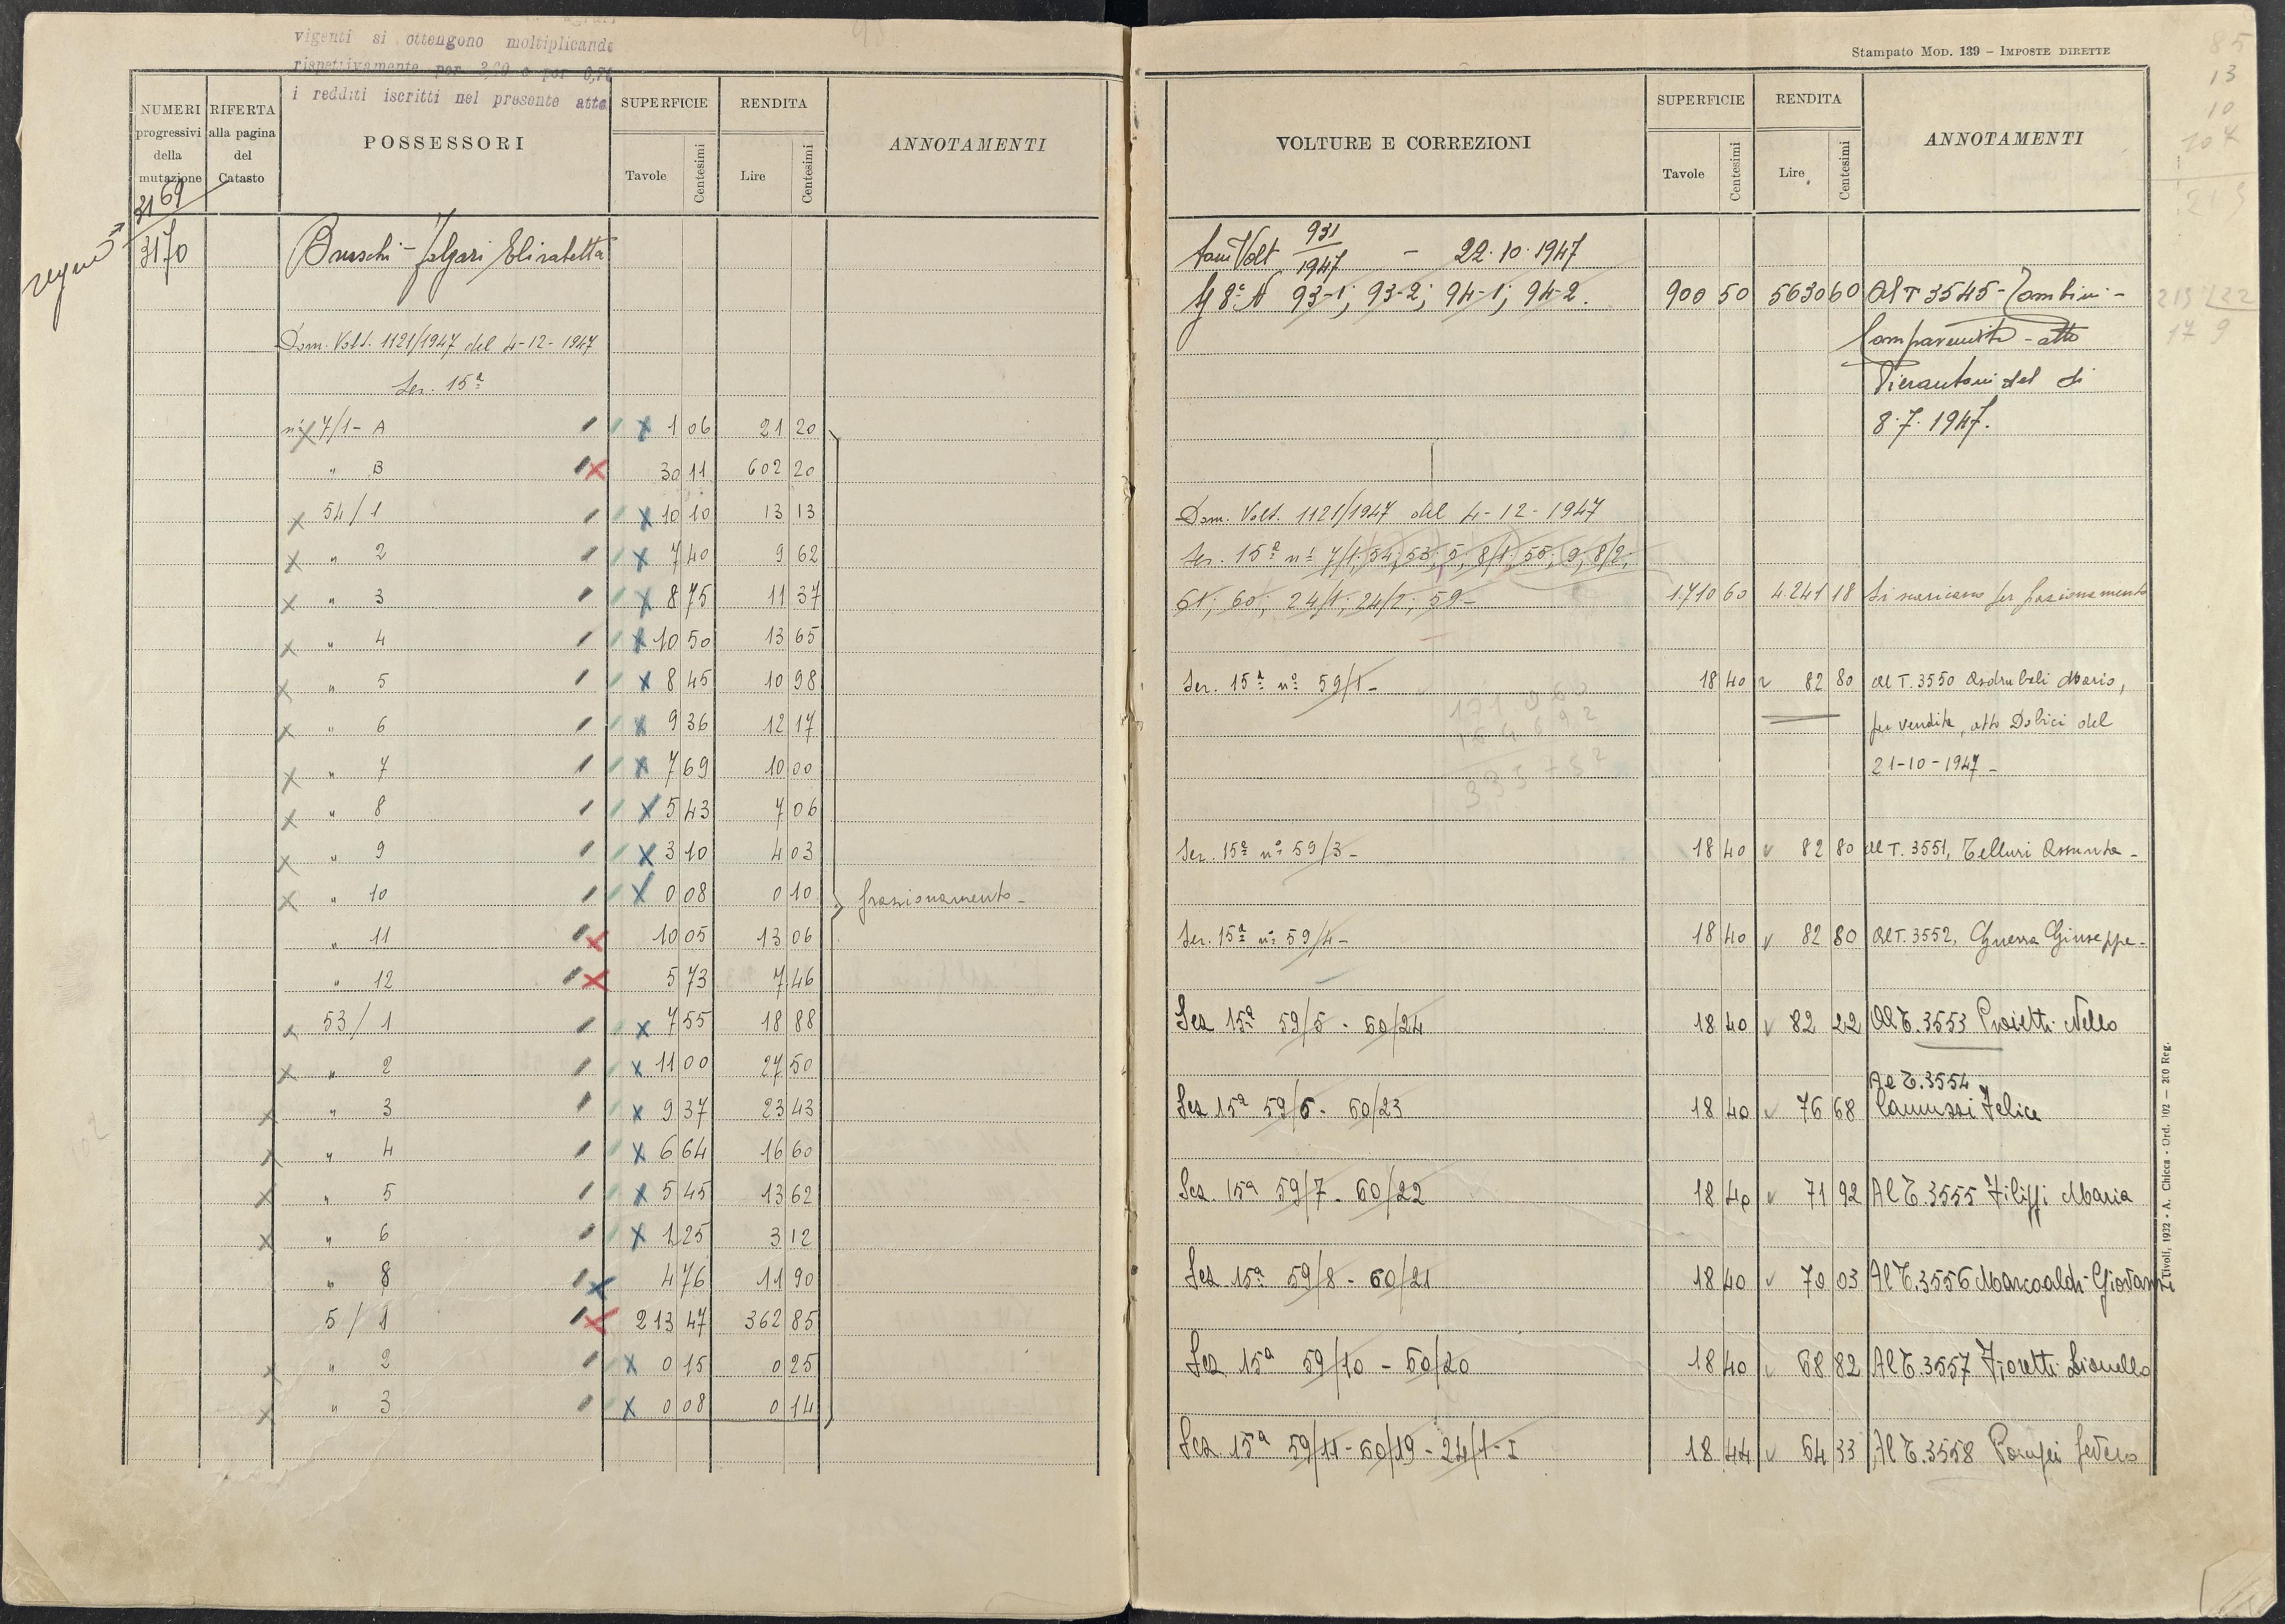 vigenti si ottengono moltiplicando
rispettivamente per
i redditi iscritti nel presente atto
NUMERI progressivi della mutazione
RIFERTA alla pagina del Catasto
POSSESSORI
SUPERFICIE
Tavole Centesimi
RENDITA
Lire Centesimi
ANNOTAMENTI
3169
3170
segue
Elisabetta
Dom. Volt. 1121/1947 del 4-12-1947
Sez. 15ª
nº 7/1- A 1 06 21 20
" B 30 11 602 20
54/1 10 10 13 13
" 2 7 40 9 62
" 3 8 75 11 37
" 4 10 50 13 65
" 5 8 45 10 98
" 6 9 36 12 17
" 7 7 69 10 00
" 8 5 43 7 06
" 9 3 10 4 03
" 10 0 08 0 10 frazionamento-
" 11 10 05 13 06
" 12 5 73 7 46
53/1 7 55 18 88
" 2 11 00 27 50
" 3 9 37 23 43
" 4 6 64 16 60
" 5 5 45 13 62
" 6 1 25 3 12
" 8 4 76 11 90
5/1 213 47 362 85
" 2 0 15 0 25
" 3 0 08 0 14
Stampato Mod. 139 – Imposte dirette
VOLTURE E CORREZIONI
SUPERFICIE
Tavole Centesimi
RENDITA
Lire Centesimi
ANNOTAMENTI
Volt 931/1947 - 22.10.1947
93-1; 93-2; 94-1; 94-2. 900 50 5630 60 Al T 3545-
atto
Pierantoni del dì
8.7.1947.
Dom. Volt. 1121/1947 del 4-12-1947
Sez. 15ª nⁱ 7/1; 54; 53; 5; 8/1; 55; 9; 8/2;
61; 60; 24/1; 24/2; 59- 1.710 60 4.241 18 Si scaricano per frazionamento
Sez. 15ª nº 59/1- 18 40 82 80 Al T. 3550 Asdrubali Mario,
per vendita, atto del
21-10-1947-
Sez. 15ª nº 59/3- 18 40 82 80 Al T. 3551, Telluri Assunta-
Sez. 15ª nº 59/4- 18 40 82 80 Al T. 3552, Guerra Giuseppe-
Sez 15ª 59/5 - 60/24 18 40 82 22 Al T. 3553 Proietti Nello
Al T. 3554
Sez 15ª 59/6 - 60/23 18 40 76 68 Felice
Sez 15ª 59/7 - 60/22 18 40 71 92 Al T. 3555 Filippi Maria
Sez 15ª 59/8 - 60/21 18 40 70 03 Al T. 3556 Marcoaldi Giovanni
Sez 15ª 59/10 - 60/20 18 40 68 82 Al T. 3557 Fioretti Lionello
Sez 15ª 59/11 - 60/19 - 24/1-I 18 44 64 33 Al T. 3558 Pompei Severo
Tivoli, 1932 - A. Chicca - Ord. 102 — 200 Reg.